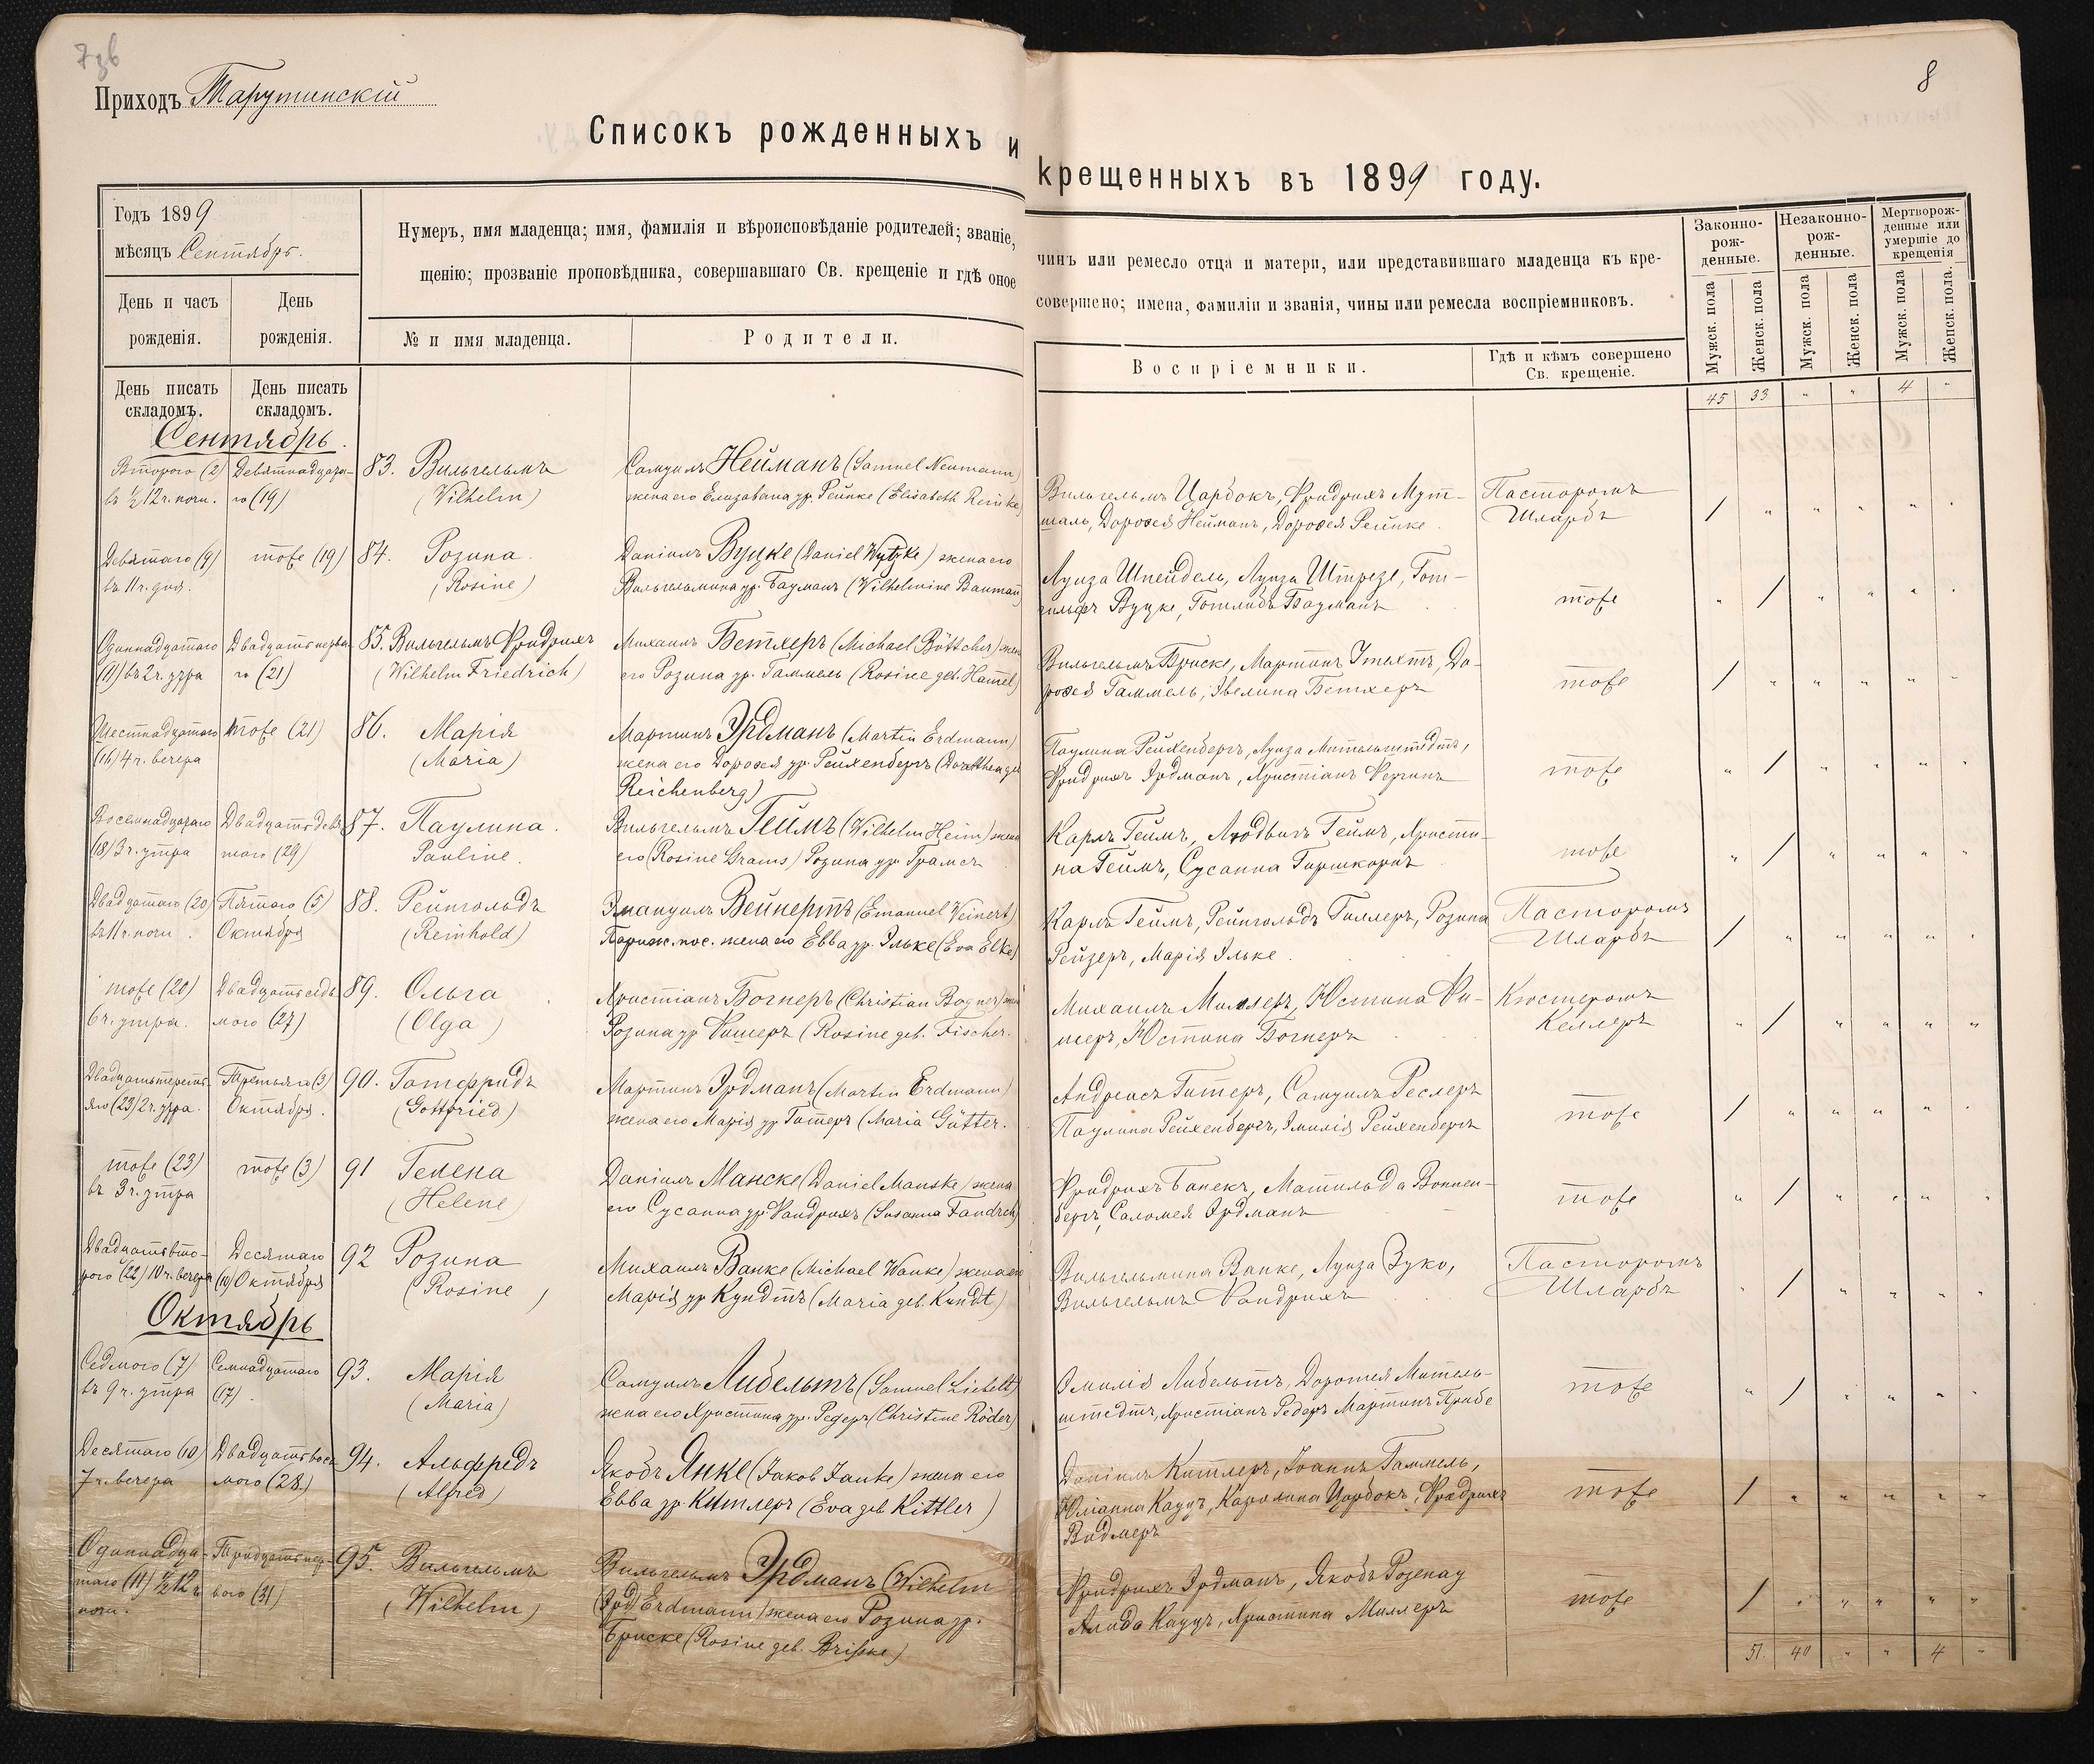 7 зв
8
Приходъ Тарутинскій
Списокъ рожденныхъ и крещенныхъ въ 1899 году.
Годъ 1899
мѣсяцъ Сентябрь.
День и часъ рожденія.
День рожденія.
Нумеръ, имя младенца; имя, фамилія и вѣроисповѣданіе родителей; званіе, чинъ или ремесло отца и матери, или представившаго младенца къ кре-
щенію; прозваніе проповѣдника, совершавшаго Св. крещеніе и гдѣ оное совершено; имена, фамиліи и званія, чины или ремесла воспріемниковъ.
№ и имя младенца.
Родители.
Воспріемники.
Гдѣ и кѣмъ совершено
Св. крещеніе.
Законно-
рож-
денные.
Незаконно-
рож-
денные.
Мертворож-
денные или
умершіе до
крещенія
Мужск. пола
Женск. пола
Мужск. пола
Женск. пола
Мужск. пола
Женск. пола.
День писать
складомъ.
День писать
складомъ.
45 33 " " 4 "
Сентябрь.
Второго (2)
въ ½ 12 ч. ночи.
Девятнадцата-
го (19)
83. Вильгельмъ
(Wilhelm)
Самуилъ Нейманъ (Samuel Neumann)
жена его Елизавета ур. Рейнке (Elisabeth Reinke)
Вильгельмъ Царбокъ, Фридрихъ Мут-
шаль, Дорофея Нейманъ, Дорофея Рейнке.
Пасторомъ
Шларбъ
Девятаго (9)
въ 11 ч. дня.
тоже (19)
84. Розина.
(Rosine)
Даніилъ Вуцке (Daniel Wutzke) жена его
Вильгельмина ур. Бауманъ (Wilhelmine Bauman)
Луиза Шпейдель, Луиза Штрезе, Гот-
гильфъ Вуцке, Готлибъ Бауманъ
тоже
Одиннадцатаго
(11) въ 2 ч. утра
Двадцать перва-
го (21)
85. Вильгельмъ Фридрихъ
(Wilhelm Friedrich)
Михаилъ Бетхеръ (Michael Böttcher) жена
его Розина ур. Гаммель (Rosine geb. Hamel)
Вильгельмъ Бриске, Мартинъ Гтехтъ, До-
рофея Гаммель, Эвелина Бетхеръ
тоже
Шестнадцатаго
(16) 4 ч. вечера
тоже (21)
86. Марія
(Maria)
Мартинъ Эрдманъ (Martin Erdmann)
жена его Дорофея ур. Рейхенбергъ (Dorothea geb
Reichenberg)
Паулина Рейхенбергъ, Луиза Мительштедтъ,
Фридрихъ Эрдманъ, Христіанъ Фергинъ
тоже
Восемнадцатаго
(18) 3 ч. утра
Двадцать девя-
таго (29)
87. Паулина.
Pauline.
Вильгельмъ Геймъ (Wilhelm Heim) жена
его (Rosine Grams) Розина ур. Грамсъ
Карлъ Геймъ, Людвигъ Геймъ, Христи-
на Геймъ, Сусанна Гиршкорнъ
тоже
Двадцатаго (20)
въ 11 ч. ночи.
Пятаго (5)
Октября
88. Рейнгольдъ
(Reinhold)
Эмануилъ Вейнертъ (Emanuel Weinert)
Париж. пос. жена его Евва ур. Эльке (Eva Elke)
Карлъ Геймъ, Рейнгольдъ Гиллеръ, Розина
Рейзеръ, Марія Эльке.
Пасторомъ
Шларбъ
тоже (20)
6 ч. утра.
Двадцать седь-
мого (27)
89. Ольга
(Olga)
Христіанъ Богнеръ (Christian Bogner) жена
Розина ур Фишеръ (Rosine geb. Fischer.
Михаилъ Миллеръ, Юстина Фи-
шеръ, Юстина Богнеръ
Кюстеромъ
Келлеръ
Двадцать треть-
яго (23) 2 ч. утра.
Третьяго (3)
Октября.
90. Готфридъ
(Gottfried)
Мартинъ Эрдманъ (Martin Erdmann)
жена его Марія ур Гитеръ (Maria Gütter.
Андреасъ Гитеръ, Самуилъ Реслеръ
Паулина Рейхенбергъ, Эмилія Рейхенбергъ
тоже
тоже (23)
въ 3 ч. утра
тоже (3)
91 Гелена
(Helene)
Даніилъ Манске (Daniel Manske) жена
его Сусанна ур. Фандрихъ (Susanna Fandrch)
Фридрихъ Банекъ, Матильда Воннен-
бергъ, Саломея Эрдманъ
тоже
Двадцать вто-
рого (22) 10 ч. вечера
Десятаго
(10) Октября
92 Розина
(Rosine)
Михаилъ Ванке (Michael Wanke) жена его
Марія ур Кундтъ (Maria geb. Kundt)
Вильгельмина Ванке, Луиза Зуко,
Вильгельмъ Фандрихъ
Пасторомъ
Шларбъ
Октябрь
Седмого (7)
въ 9 ч. утра
Семнадцатаго
(17).
93. Марія
(Maria)
Самуилъ Либельтъ (Samuel Liebelt)
жена его Христина ур. Редеръ (Christine Röder)
Эмилія Либельтъ, Доротея Митель-
штедтъ, Христіанъ Редеръ Мартинъ Прибе
тоже
Десятаго (10)
7 ч. вечера
Двадцать вось-
мого (28)
94. Альфредъ
(Alfred)
Якобъ Янке (Jakob Janke) жена его
Евва ур. Китлеръ (Eva geb Kittler)
Даніилъ Китлеръ, Іоаннъ Гаммель,
Юліанна Кауцъ, Каролина Царбокъ, Фридрихъ
Видмеръ
тоже
Одиннадца-
таго (11) ½ 12 ч
ночи.
Тридцать пер-
вого (31)
95. Вильгельмъ
(Wilhelm)
Вильгельмъ Эрдманъ (Wilhelm
Erdmann) жена его Розина ур.
Бриске (Rosine geb. Briske)
Фридрихъ Эрдманъ, Якобъ Розенау
Алида Кауцъ, Христина Миллеръ
тоже
51. 40 " " 4 "